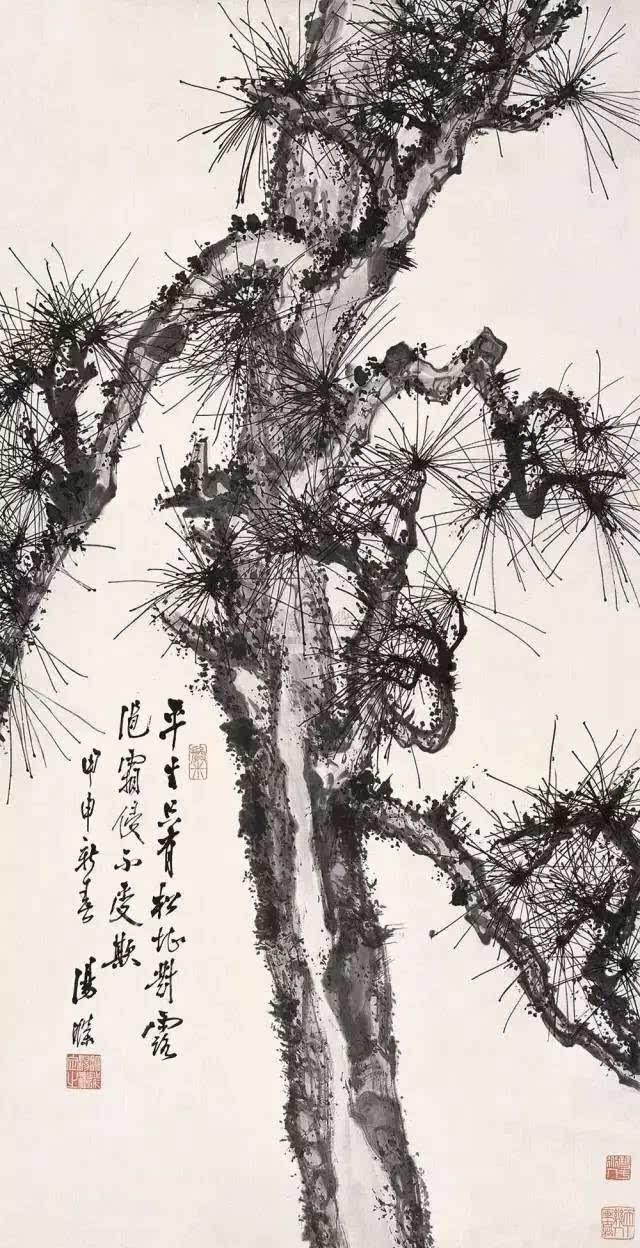 平生只有松堪對露
浥霜侵不受欺
甲申新春 湯滌